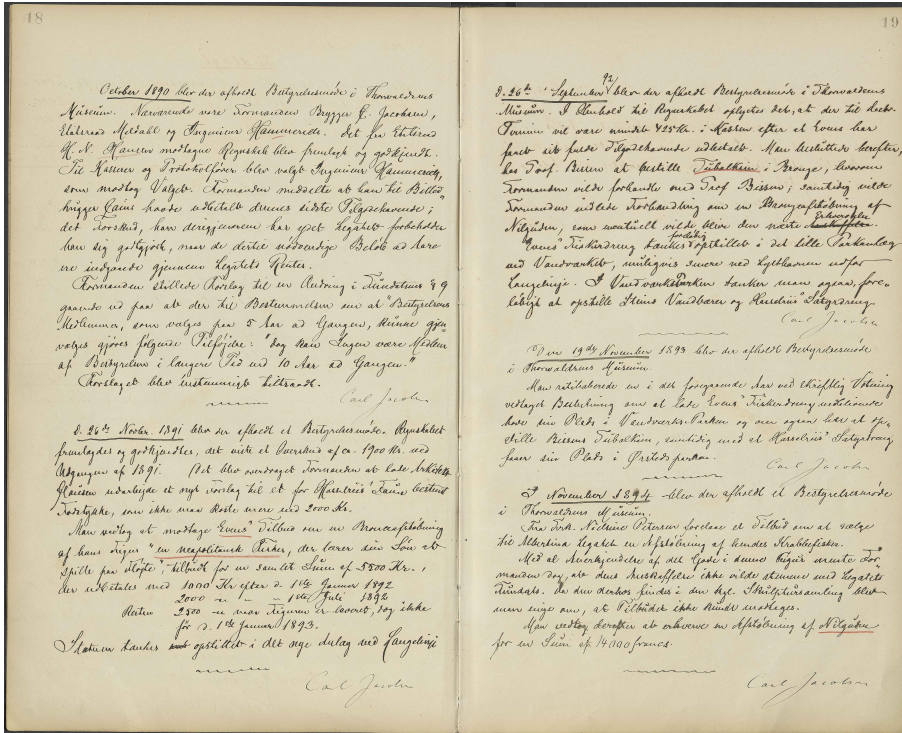 18
October 1890 blev der afholdt Bestyrelsesmøde i Thorvaldsens
Museum. Nærværende vare Formanden Brygger C. Jacobsen,
Etatsraad Meldahl og Ingeniør Hammerede. Det fra Etatsraad
H. N. Hansen modtagne Regnskab blev fremlagt og godkjendt.
Til Kasserer og Protokolfører blev valgt Ingeniør
som modtog Valget. Formanden meddelte at han til Billed-
hugger havde udbetalt dennes sidste Tilgodehavende;
det Forskud, han derigjennem har ydet Legatet forbeholder
han sig godtgjort, naar de dertil nødvendige Beløb
ere indgaaede gjennem Legatets Renter.
Formanden stillede Forslag til en Ændring i Fundatsens § 9
gaaende ud paa at der til Bestemmelsen om at "Bestyrelsens
Medlemmer, som vælges paa 5 Aar ad Gangen, kunne gjen-
vælges gjøres følgende Tilføjelse: "dog kan Ingen være Medlem
af Bestyrelsen i længere Tid end 10 Aar ad Gangen."
Forslaget blev enstemmigt tiltraadt.
Carl Jacobsen
d. 26de Novbr. 1891 blev der afholdt et Bestyrelsesmøde. Regnskabet
fremlagdes og godkjendtes, det viste et Overskud af ca. 1900 Kr. ved
Udgangen af 1891. Det blev overdraget Formanden at lade Arkitekt
udarbejde et nyt Forslag til et for Hasselriis' Faun bestemt
Fodstykke, som ikke maa koste mere end 2000 Kr.
Man vedtog at modtage Evens' Tilbud om en Bronceafstøbning
af hans Figur "en neapolitansk Fisker, der lærer sin Søn at
spille paa Fløjte", tilbudt for en samlet Sum af 5500 Kr.,
der udbetales med 1000 Kr efter d. 1ste Januar 1892
2000 - " - " - 1ste Juli 1892
Resten 2500 - " naar Figuren er leveret, dog ikke
før d. 1ste Januar 1893.
Statuen tænkes opstillet i det nye Anlæg ved Langelinje
Carl Jacobsen
19
d. 26de September 92 blev der afholdt Bestyrelsesmøde i Thorvaldsens
Museum. I Henhold til Regnskabet oplystes det, at der til
Termin vil være mindst 425 Kr. i Kassen efter at Evens har
faaet sit fulde Tilgodehavende udbetalt. Man besluttede herefter,
hos Prof. Bissen at bestille Tubalkain i Bronze, hvorom
Formanden vilde forhandle med Prof Bissen; samtidig vilde
Formanden indlede Forhandling om en Bronzeafstøbning af
Nilguden, som eventuelt vilde blive den næste Erhvervelse.
Evens' Fiskerdreng tænkes foreløbig opstillet i det lille Parkanlæg
ved Vandværket, muligvis senere ved Lystbaaden udfor
Langelinje. I Vandværksparken tænker man ogsaa, fore-
løbigt at opstille Steins Vandbærer og Hasselriis' Satyrdreng.
Carl Jacobsen
Den 19de November 1893 blev der afholdt Bestyrelsesmøde
i Thorvaldsens Museum.
Man ratihaberede en i det foregaaende Aar ved skriftlig Votering
vedtaget Beslutning om at lade Evens' Fiskerdreng
have sin Plads i Vandværks-Parken og der ogsaa lade op-
stille Bissens Tubalkain, samtidig med at Hasselriis' Satyrdreng
faaer sin Plads i Ørstedsparken.
Carl Jacobsen
I November 1894 blev der afholdt et Bestyrelsesmøde
i Thorvaldsens Museum.
Fra Frk. Nielsine Petersen forelaae et Tilbud om at sælge
til Albertina Legatet en Afstøbning af hendes Krabbefisker.
Med al Anerkjendelse af det Gode i denne Figur mente For-
manden dog, at dens Anskaffelse ikke vilde stemme med Legatets
Fundats. Da den derhos findes i den kgl. Skulptursamling blev
man enige om, at Tilbudet ikke kunde modtages.
Man vedtog derefter at erhverve en Afstøbning af Nilguden
for en Sum af 14000 francs.
Carl Jacobsen